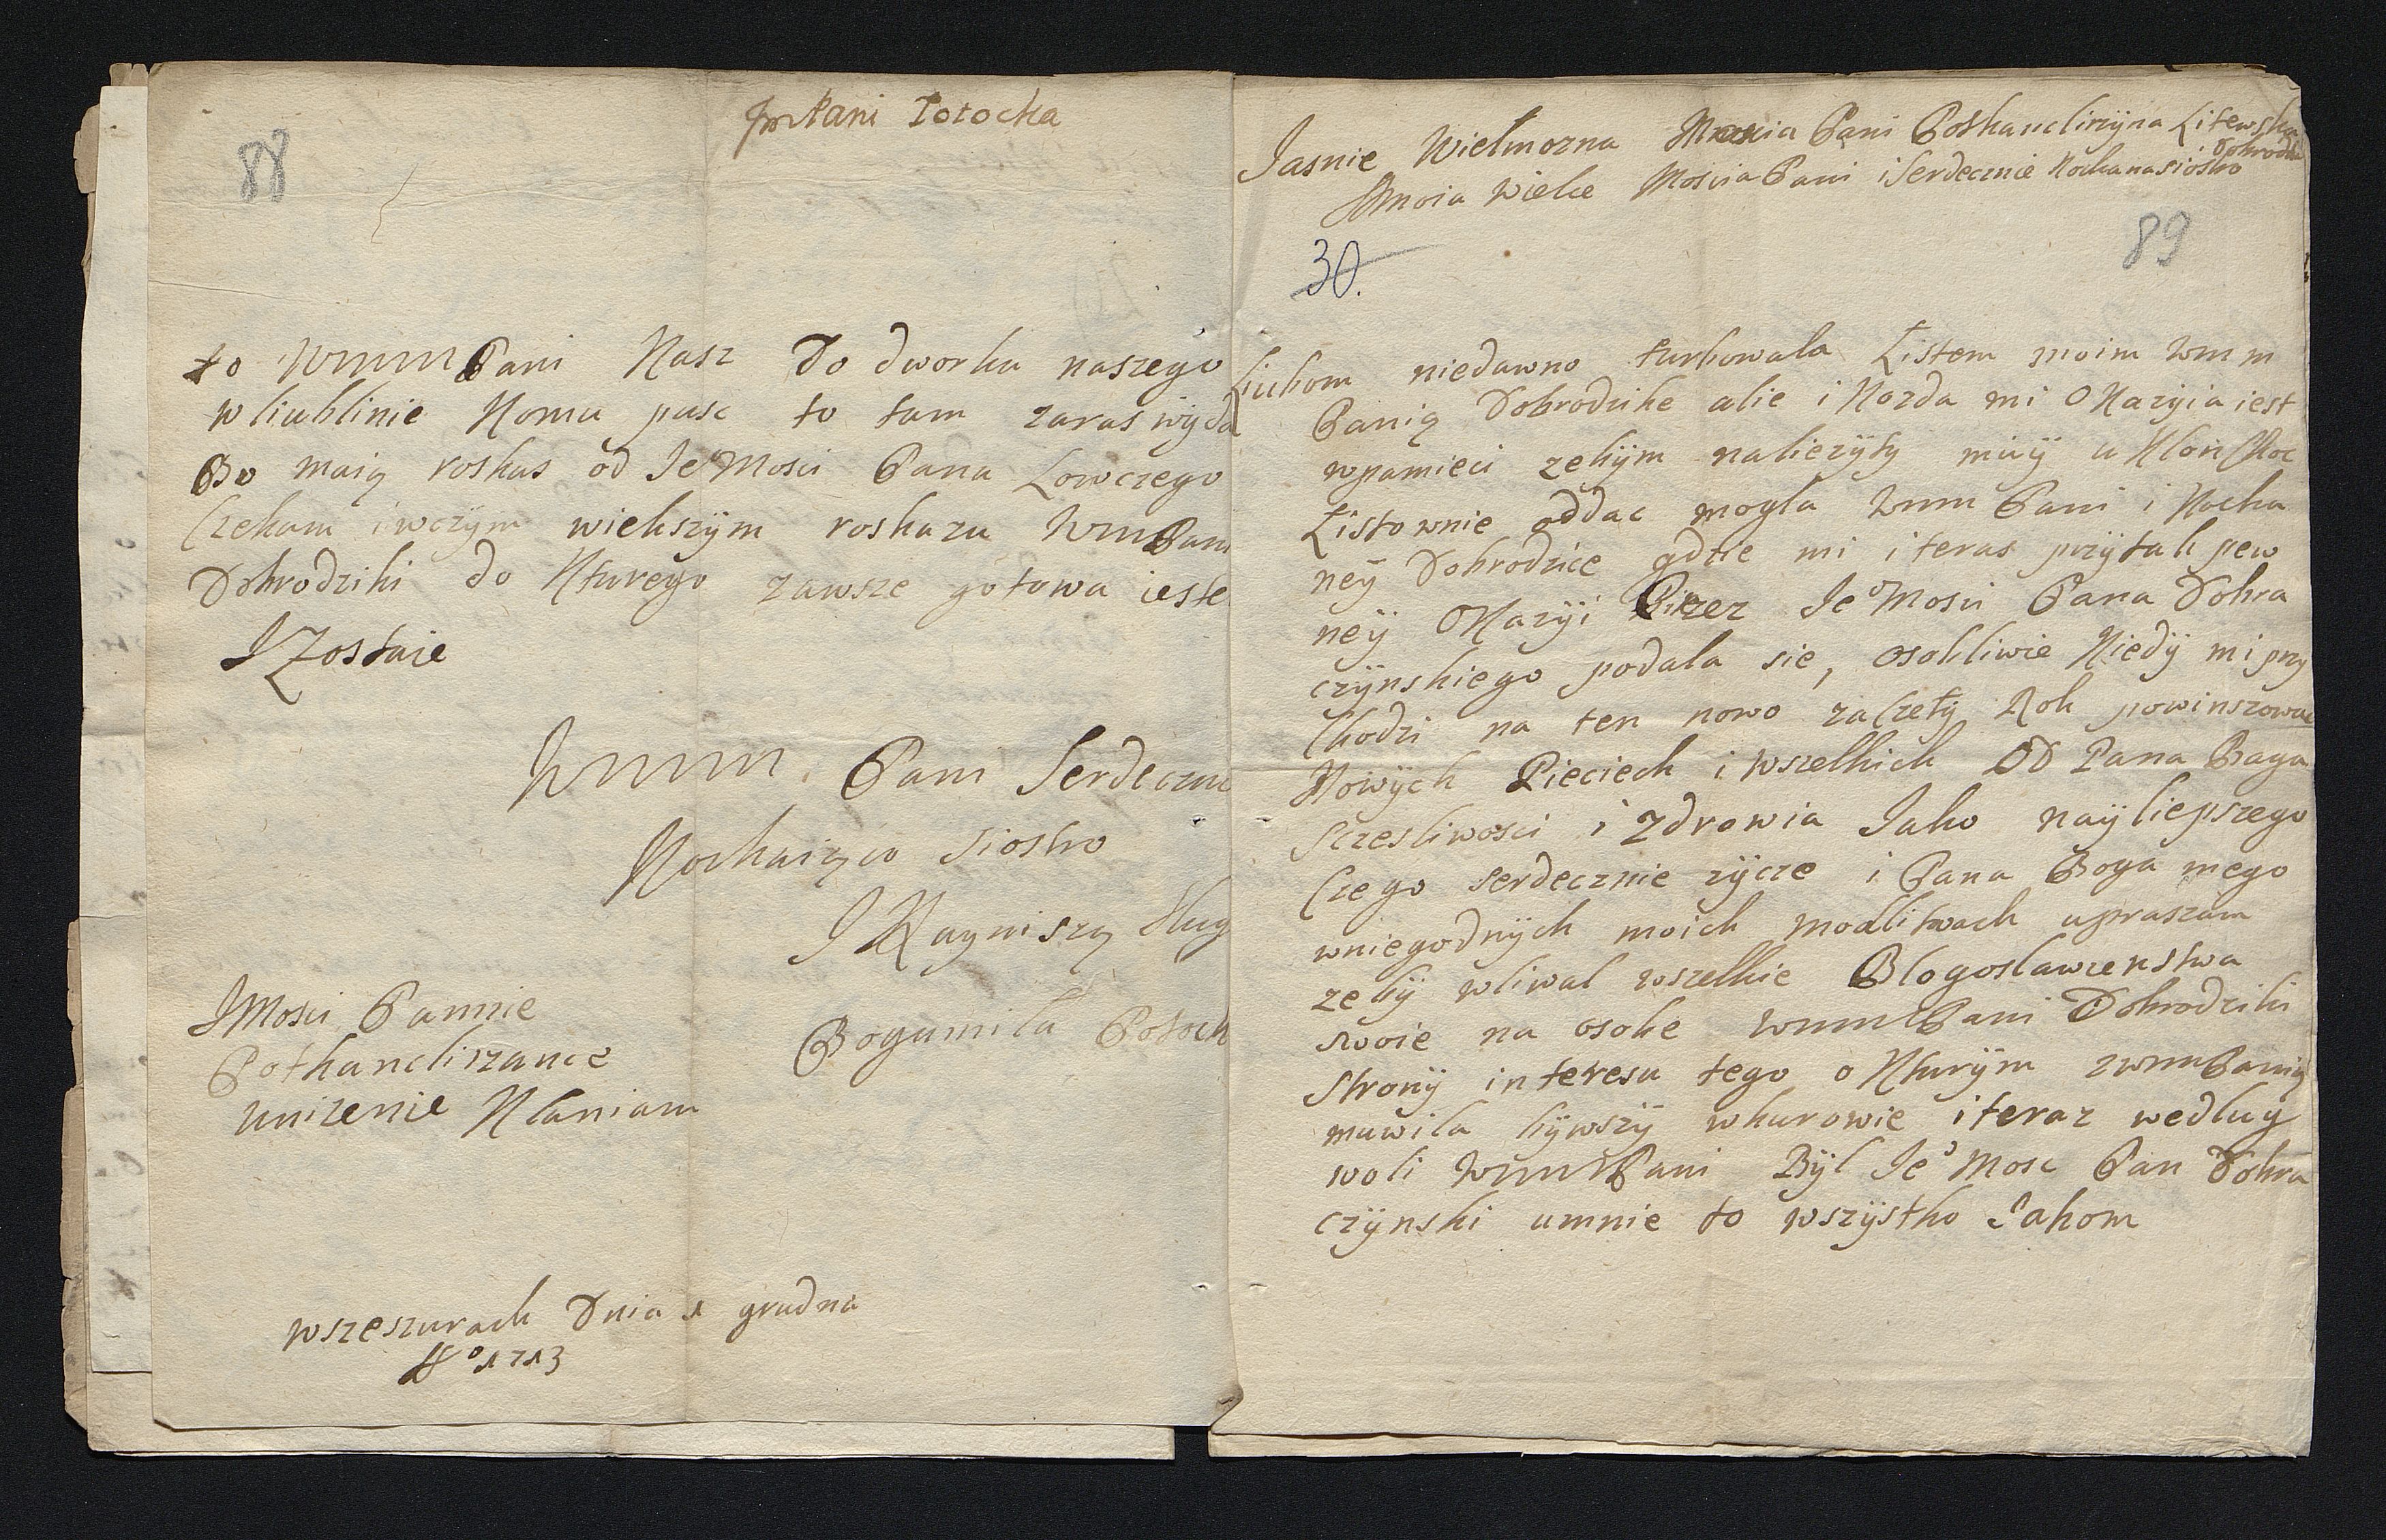 JmPani Potocka
88
to WmmPani Kasz Do dworku naszego
wliublinie Komu pusc to tam zaras wÿda
Bo maią roskas od JeoMosci Pana Lowczego
Czekam iwczÿm wiekszÿm roskazu WmPani
Dobrodziki do Kturego zawsze gotowa ieste
I Zostaie
Wmm Pani Serdeczni
Kochaiącą siostro
I Nayniszą slug
Bogumila Potock
JMosci Pannie
Potkancliszance
unizenie Klaniam
wszeszurach Dnia 1 grudna
Ao 1713
Jasnie Wielmozna Moscia Pani Potkanclirzÿna Litewska
Dobrodki
Amoia Wielce MosciaPani iSerdecznie Kochanasiostro
30.
89
Liubom niedawno turbowala Listem moim wmm
Panią Dobrodzike alie i Kozda mi OKazÿia iest
wpamieci zebÿm naliezÿty muÿ uKlon Choc
Listownie oddac mogla wmm Pani i Kocha
neÿ Dobrodzice gdzie mi i teras przÿtak pew
neÿ OKazÿi Przez JeoMosci Pana Dobra
czÿnskiego podala sie, osobliwie Kiedÿ mi przÿ
Chodzi na ten nowo zaCzetÿ Rok powinszowac
Nowÿch Pieciech i wszelkich OD Pana Baga
Sczesliwosci i Zdrowia Jako naÿliepszego
Czego serdecznie zÿcze i Pana Boga mego
wniegodnÿch moich modlitwach upraszam
zebÿ wliwal wszelkie Blogoslawienstwa
swoie na osobe wmmPani Dobrodziki
Stronÿ interesu tego o Kturÿm zwmmPanią
muwila bÿwszÿ wkurowie i teraz wedlug
woli WmmPani Bÿl Jeo Mosc Pan Dobra
czÿnski umnie to wszÿstko Jakom